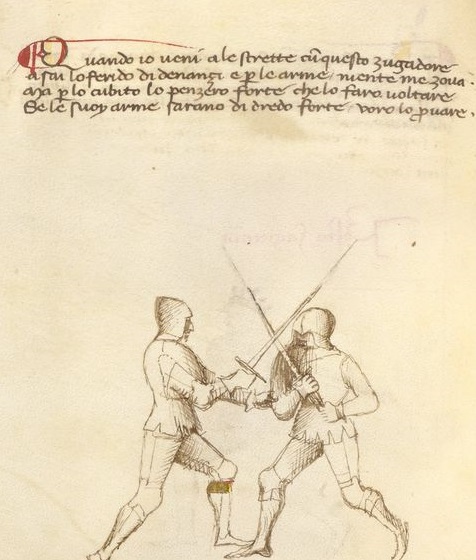 Quando io veni a le strette cũ questo zugadore
assai lo ferido di denanzi e p le arme niente me zova.
Ma p lo cubito lo penzero forte che lo faro voltare
Se le suoy arme sarano di dredo forte voro lo ꝓvare.